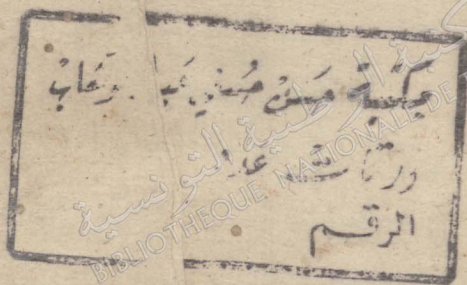 مكتبة حسن حسني عبد الوهاب
ورقات عدد
الرقم
المكتبة الوطنية التونسية
BIBLIOTHEQUE NATIONALE DE